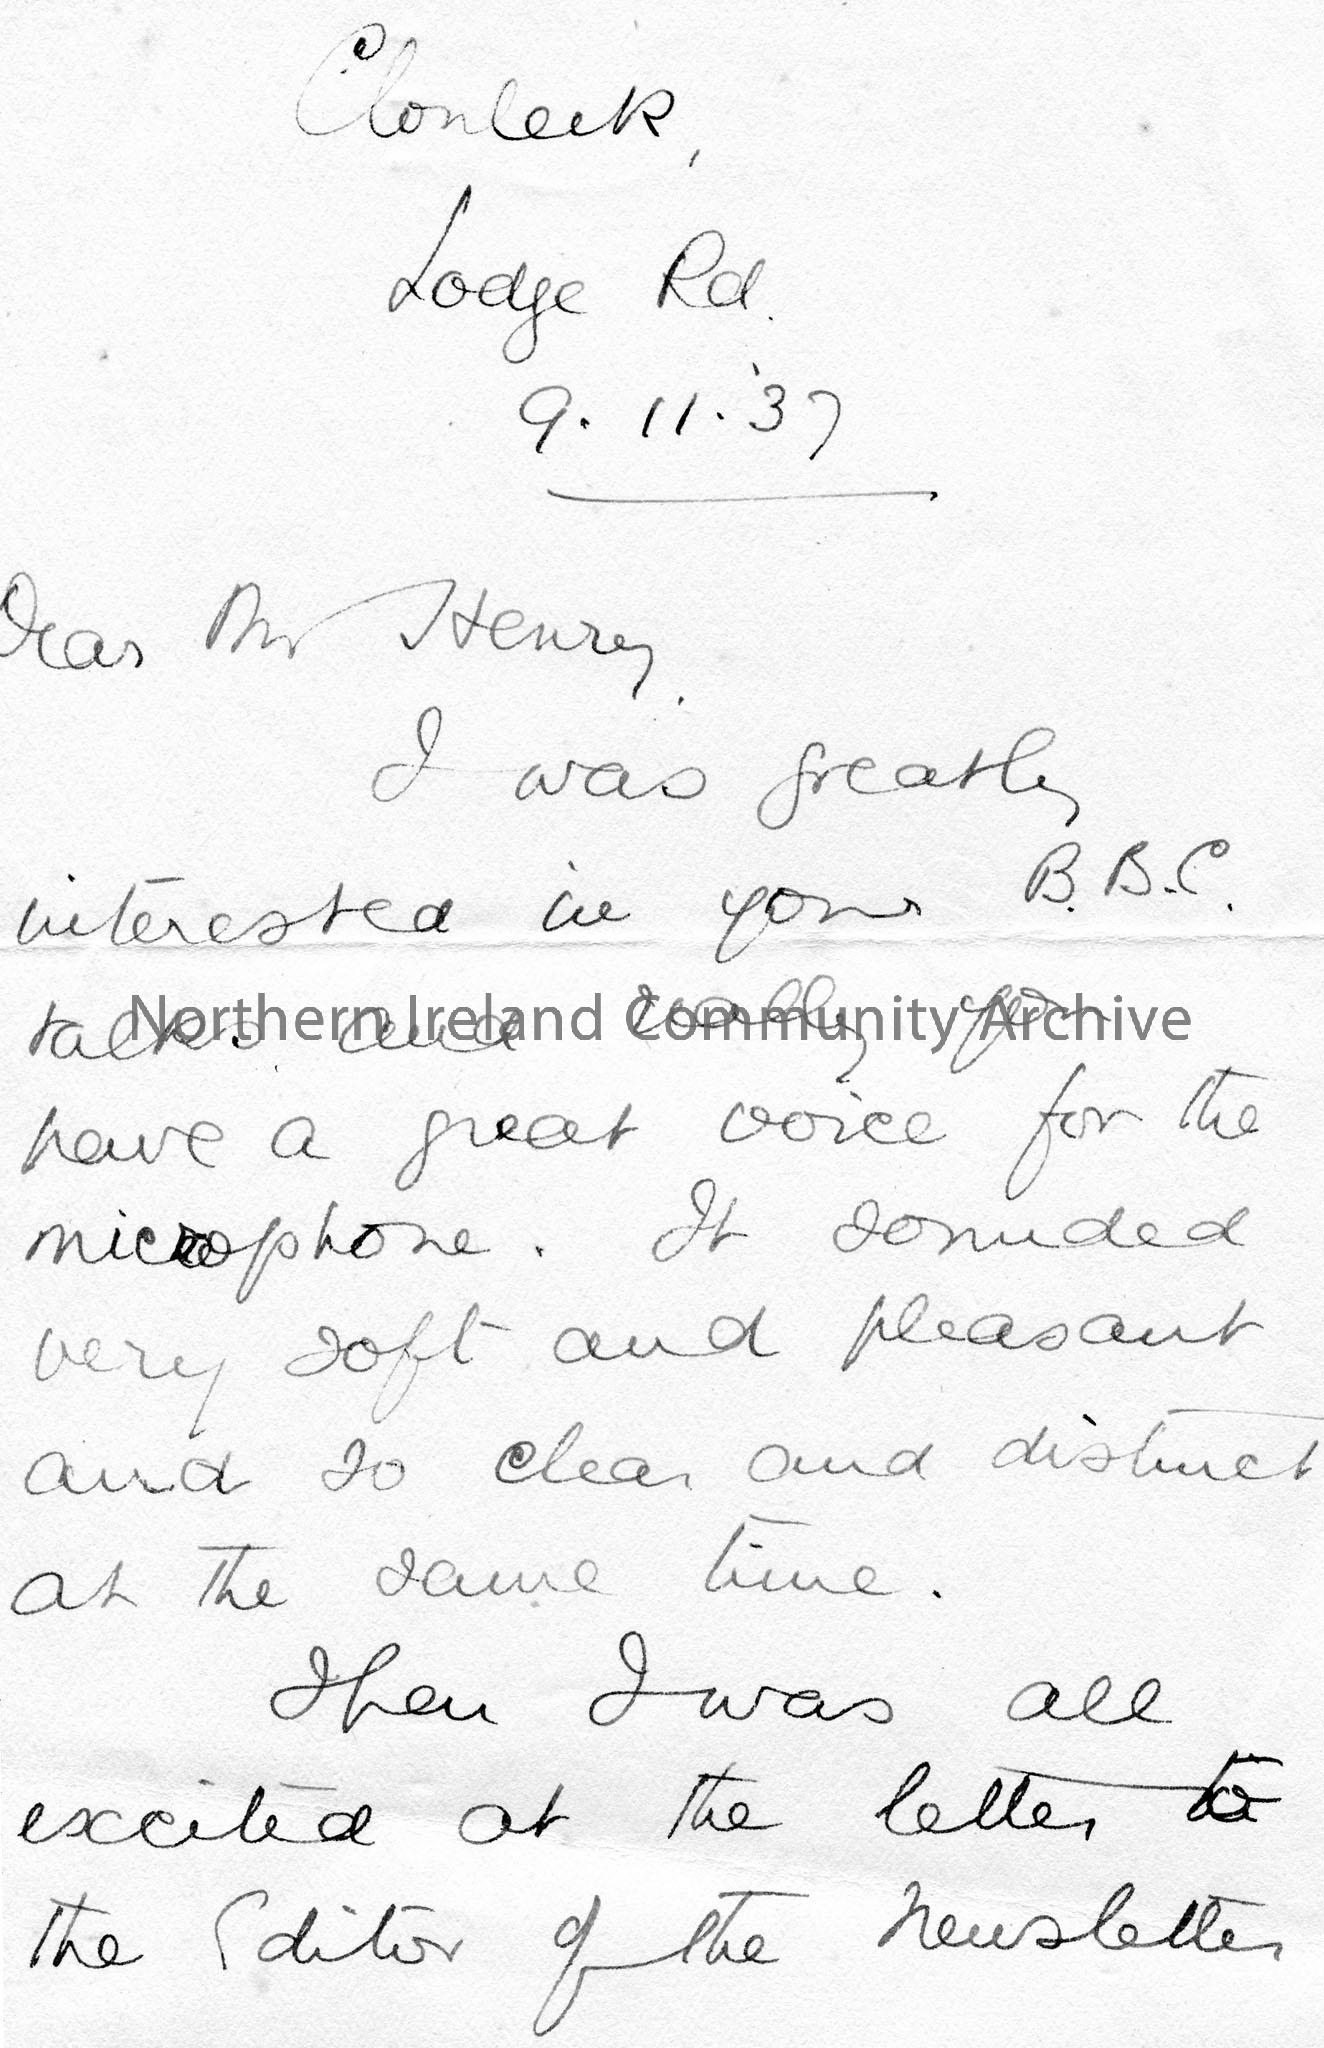 Clonleek,
Lodge Rd.
9. 11. '37
Dear Mr Henry,
I was greatly
interested in your B.B.C.
talks and really you
Northern Ireland Community Archive
have a great voice for the
microphone. It sounded
very soft and pleasant
and so clear and distinct
at the same time.
Then I was all
excited at the letter to
the Editor of the Newsletter